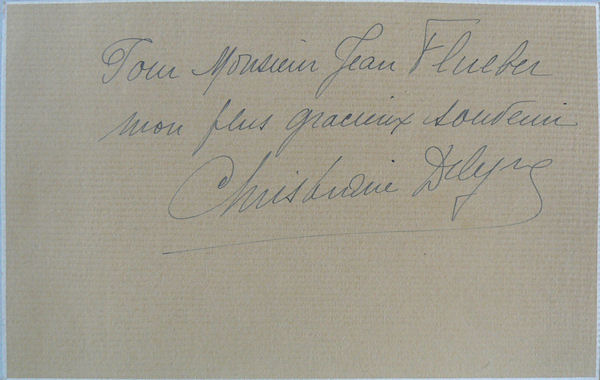 Pour Monsieur Jean Flueber
mon plus gracieux souvenir
Christiane Delyne